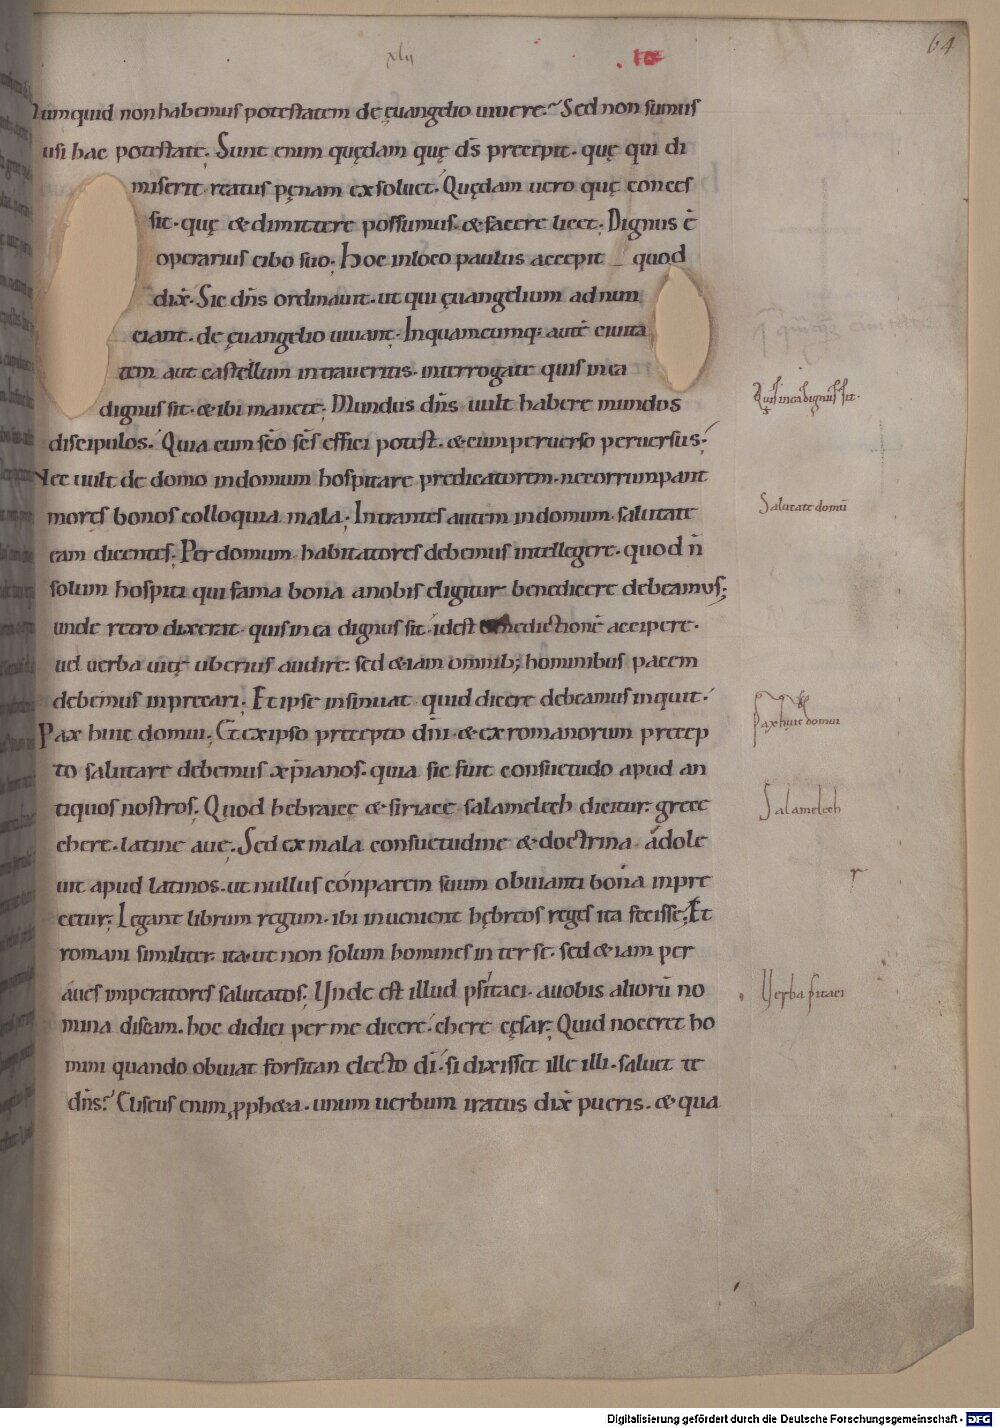 xlii
. 10
64
Numquid non habemus potestatem de ęuangelio uiuere? Sed non sumus
usi hac potestate; Sunt enim quędam quę ds̄ precepit. quę qui di
miserit. reatus pęnam exsoluet. Quędam uero quę conces
sit. quę & dimittere possumus. & facere licet; Dignus ē
operarius cibo suo; Hoc in loco paulus accepit quod
dix̄. Sic dn̄s ordinauit. ut qui ęuangelium adnun
ciant. de ęuangelio uiuant. Inquamcumq; autē ciuita
tem aut castellum intraueritis. interrogate quis in ea
dignus sit. & ibi manete; Mundus dn̄s uult habere mundos
discipulos. Quia cum sc̄o sc̄s effici potest. & cum peruerso peruersus;
Nec uult de domo in domum hospitare predicatorem. ne corrumpant
mores bonos colloquia mala; Intrantes autem in domum. salutate
eam dicentes; Per domum habitatores debemus intellegere. quod n̄
solum hospiti qui fama bona a nobis digitur benedicere debeamus;
unde retro dixerat. quis in ea dignus sit. id est benedictionē accipere.
ud uerba uitę uberius audire. sed & iam omnib; hominibus pacem
debemus inprecari; Et ipse insinuat quid dicere debeamus inquit.
Pax huic domui; Et ex ipso precepto dn̄i & ex romanorum precep
to salutare debemus xp̄ianos. quia sic fuit consuetudo apud an
tiquos nostros; Quod hebraice & siriace salamelech dicitur. grece
chere. latine aue; Sed ex mala consuetudine & doctrina adole
uit apud latinos. ut nullus conparem suum obuianti bona inpre
cetur; Legant librum regum. ibi inuenient hębreos reges ita fecisse; Et
romani similiter. ita ut non solum homines inter se. sed & iam per
aues imperatores salutatos; Unde est illud psitaci. a uobis aliorū no
mina discam. hoc didici per me dicere. chere cęsar; Quid noceret ho
mini quando obuiat forsitan electo dī. si dixisset ille illi. saluet te
dn̄s? Eliseus enim ꝓpheta. unum uerbum iratus dix̄ pueris. & qua
Quis in ea dignus sit.
Salutate domū
Pax huic domui
Salamelech
r
Uerba psitaci
Digitalisierung gefördert durch die Deutsche Forschungsgemeinschaft - DFG